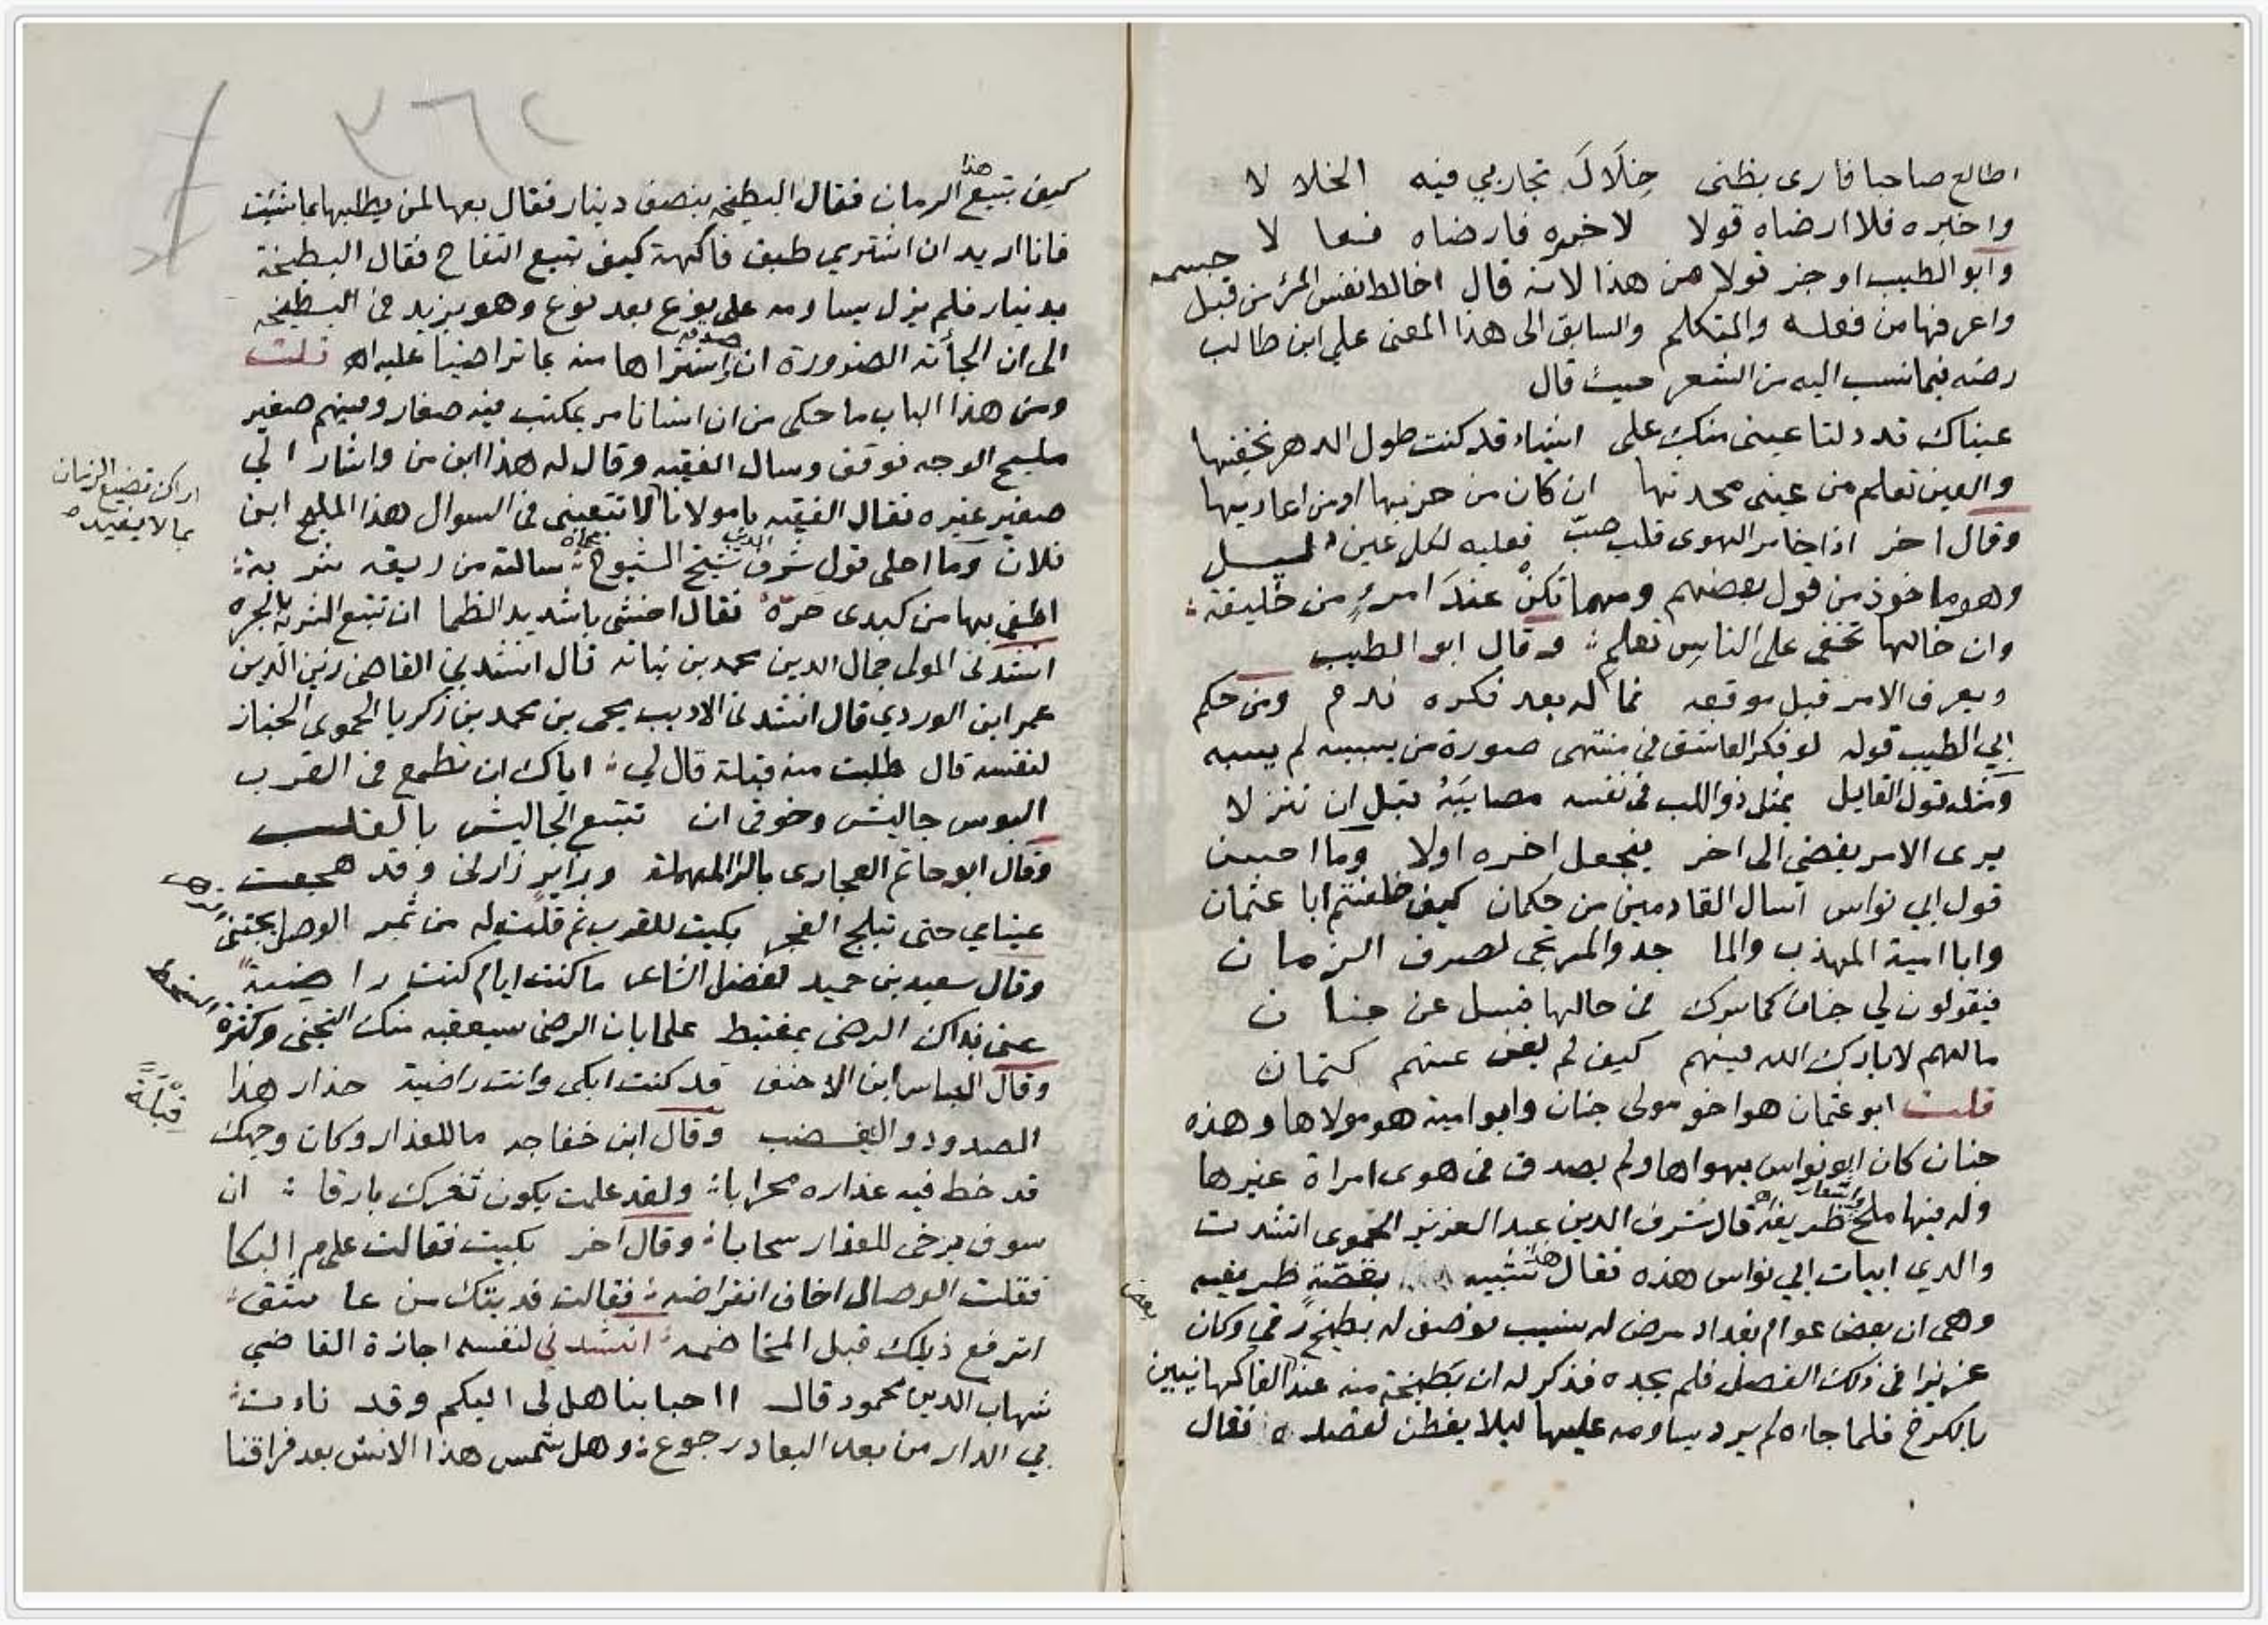 اطالع صاحبا فارى بظنى خِلَالَ تجاربي فيه الخلا لا
واخبره فلا ارضاه قولا لاخبره فارضاه فعا لا
وابو الطيب اوجز قولا من هذا لانه قال اخالط نفس المرء من قبل جسمه
واعرفها من فعله والمتكلم والسابق الى هذا المعنى علي ابن طالب
رضه فيما نسب اليه من الشعر حيث قال
عيناك قد دلتا عينى منك على اشياء قد كنت طول الدهر تخفيها
والعين تعلم من عينى محدثها ان كان من حزبها او من اعاديها
وقال اخر اذا خامر الهوى قلب صبّ فعليه لكل عين دليل
وهو ماخوذ من قول بعضهم ومهما تكنْ عندَ امرءٍ من خليقة
وان خالها تخفى على الناسِ تعلم وقال ابو الطيب
ويعرف الامر قبل موقعه فما له بعد فكره ندم ومن حكم
ابي الطيب قوله لو فكر العاشق في منتهى صورة من يسبيه لم يسبه
ومثله قول القايل يمثل ذو اللب في نفسه مصايبَهُ قبل ان تنزلا
يرى الامر يفضي الى اخر فيجعل اخره اولا وما احسن
قول ابي نواس اسال القادمين من حكمان كيف خلفتم ابا عثمان
وابا امية المهذب والما جد والمرتجى لصرف الزمان
فيقولون لي جنان كما سرك في حالها فسل عن جنان
مالهم لا بارك الله فيهم كيف لم يغن عنهم كتمان
قلت ابو عثمان هو اخو مولى جنان وابو امية هو مولاها وهذه
جنان كان ابو نواس يهواها ولم يصدق في هوى امراة غيرها
وله فيها ملح واشعار ظريفة قال شرف الدين عبد العزيز الحموى انشدت
والدي ابيات ابي نواس هذه فقال هذا شبيه بقصّةٍ ظريفه
وهى ان بعض عوام بغداد مرض له نسيب فوصف له بطيخ رقي وكان
عزيزا في ذلك الفصل فلم يجده فذكر له ان بَطيخة منه عند الفاكهانيين
بالكرخ فلما جاءه لم يرد يساومه عليها ليلا يفطن لقصده فقال
بعض
٣٦٢
كيف تبيع هذا الرمان فقال البطيخه بنصف دينار فقال بعها لمن يطلبها بما شئت
فانا اريد ان اشتري طبق فاكهة كيف تبيع التفاح فقال البطيخة
بدينار فلم يزل يساومه على نوع بعد نوع وهو يزيد في البطيخه
الى ان الجأته الضرورة ان اشتراها منه بما تراضينا عليه اه قلت
ومن هذا الباب ما حكى من ان انسانا مر بمكتب فيه صغار وفيهم صغير
مليح الوجه فوقف وسال الفقيه وقال له هذا ابن من واشار الي
صغير غيره فقال الفقيه يا مولانا لا تتعبنى في السوال هذا المليح ابن
اراك تضيع الزمان
بما لا يفيد
فلان وما احلى قول شرف الدين شيخ الشيوخ بحماه سالته من ريقه شربة
اطفى بها من كبدى حَرّه فقال اخشى يا شديد الظما ان تتبع الشربة بالجره
انشدنى المولى جمال الدين محمد بن نباته قال انشدني القاضى زين الدين
عمر ابن الوردي قال انشدنى الاديب يحيى بن محمد بن زكريا الحموى الخباز
لنفسه قال طلبت منه قبلة قال لي اياك ان تطمع في القرب
البوس جاليش وخوفى ان تتبع الجاليش بالقلب
وقال ابو حاتم الحجارى بالرا المهملة وزايرٍ زارنى وقد هجعت
عيناي حتى تبلج الفجر بكيت للقرب ثم قلت له من ثمر الوصل يجتنى
وقال سعيد بن حميد لفضل الشاعى ما كنت ايام كنت راضية
عنى بذاك الرضى بمغتبط علما بان الرضى سيعقبه منك التجنى وكثرة السخط
وقال العباس ابن الاحنف قد كنت ابكى وانت راضية حذار هذا
الصدود والغضب وقال ابن خفاجه ما للعذار وكان وجهك
قِبْلَةً
قد خط فيه عذاره محرابا ولقد علمت يكون ثغرك بارقا ان
سوف يرخى للعذار سحابا وقال اخر بكيت فقالت على م البكا
فقلت الوصال اخاف انقراضه فقالت فديتك من عاشق
اترفع ذيلك قبل المخاضه انشدني لنفسه اجازة القاضي
شهاب الدين محمود قال ااحبابنا هل لى اليكم وقد ناءت
بي الدار من بعد البعاد رجوع وهل شمس هذا الانس بعد فراقنا